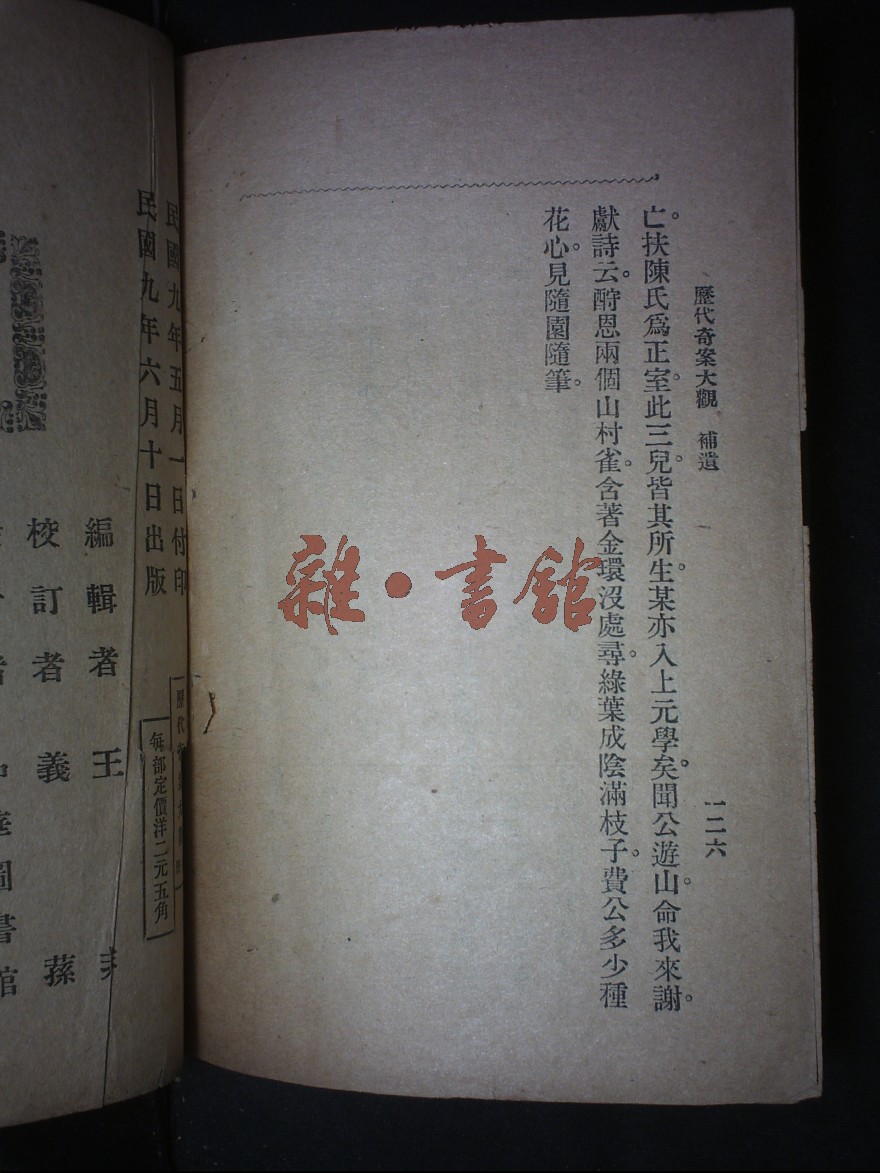 歷代奇案大觀 補遺 一二六
亡。扶陳氏爲正室。此三兒皆其所生。某亦入上元學矣。聞公遊山。命我來謝。
獻詩云。酧恩兩個山村雀。含著金環沒處尋。綠葉成陰滿枝子。費公多少種
花心。見隨園隨筆。
雜·書館
民國九年五月一日付印
民國九年六月十日出版
每部定價洋二元五角
編輯者 王
校訂者 義 蓀
圖書館